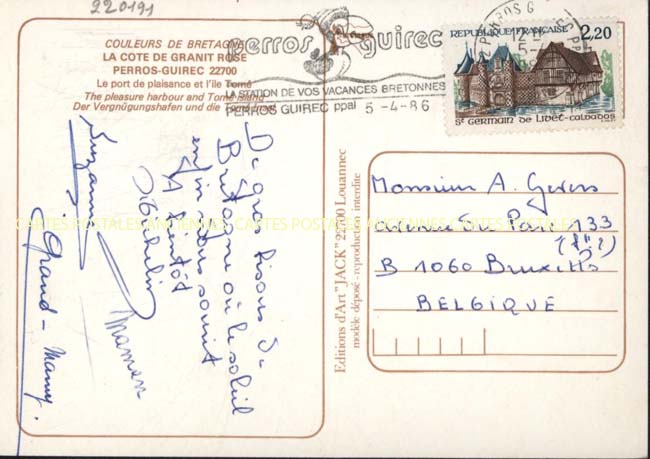 220191
COULEURS DE BRETAGNE
LA COTE DE GRANIT ROSE
PERROS-GUIREC 22700
Le port de plaisance et l'île Tomé
The pleasure harbour and Tomé island
Der Vergnügungshafen und die Tomé Insel
perros guirec
LA STATION DE VOS VACANCES BRETONNES
PERROS GUIREC ppal 5-4-86
PERROS G
REPUBLIQUE FRANÇAISE 2,20
St GERMAIN DE LIVET-CALVADOS
De gros bisous de
Bretagne où le soleil
enfin nous sourit
A bientôt
Micheline
Maman
Suzanne
Grand-Mamy.
Editions d'Art "JACK" 22700 Louannec
modèle déposé - reproduction interdite
Monsieur A. Gevers
avenue du Parc 133
B 1060 Bruxelles
BELGIQUE
CARTES POSTALES ANCIENNES CARTES POSTALES ANCIENNES CARTES POSTALES ANCIENNES